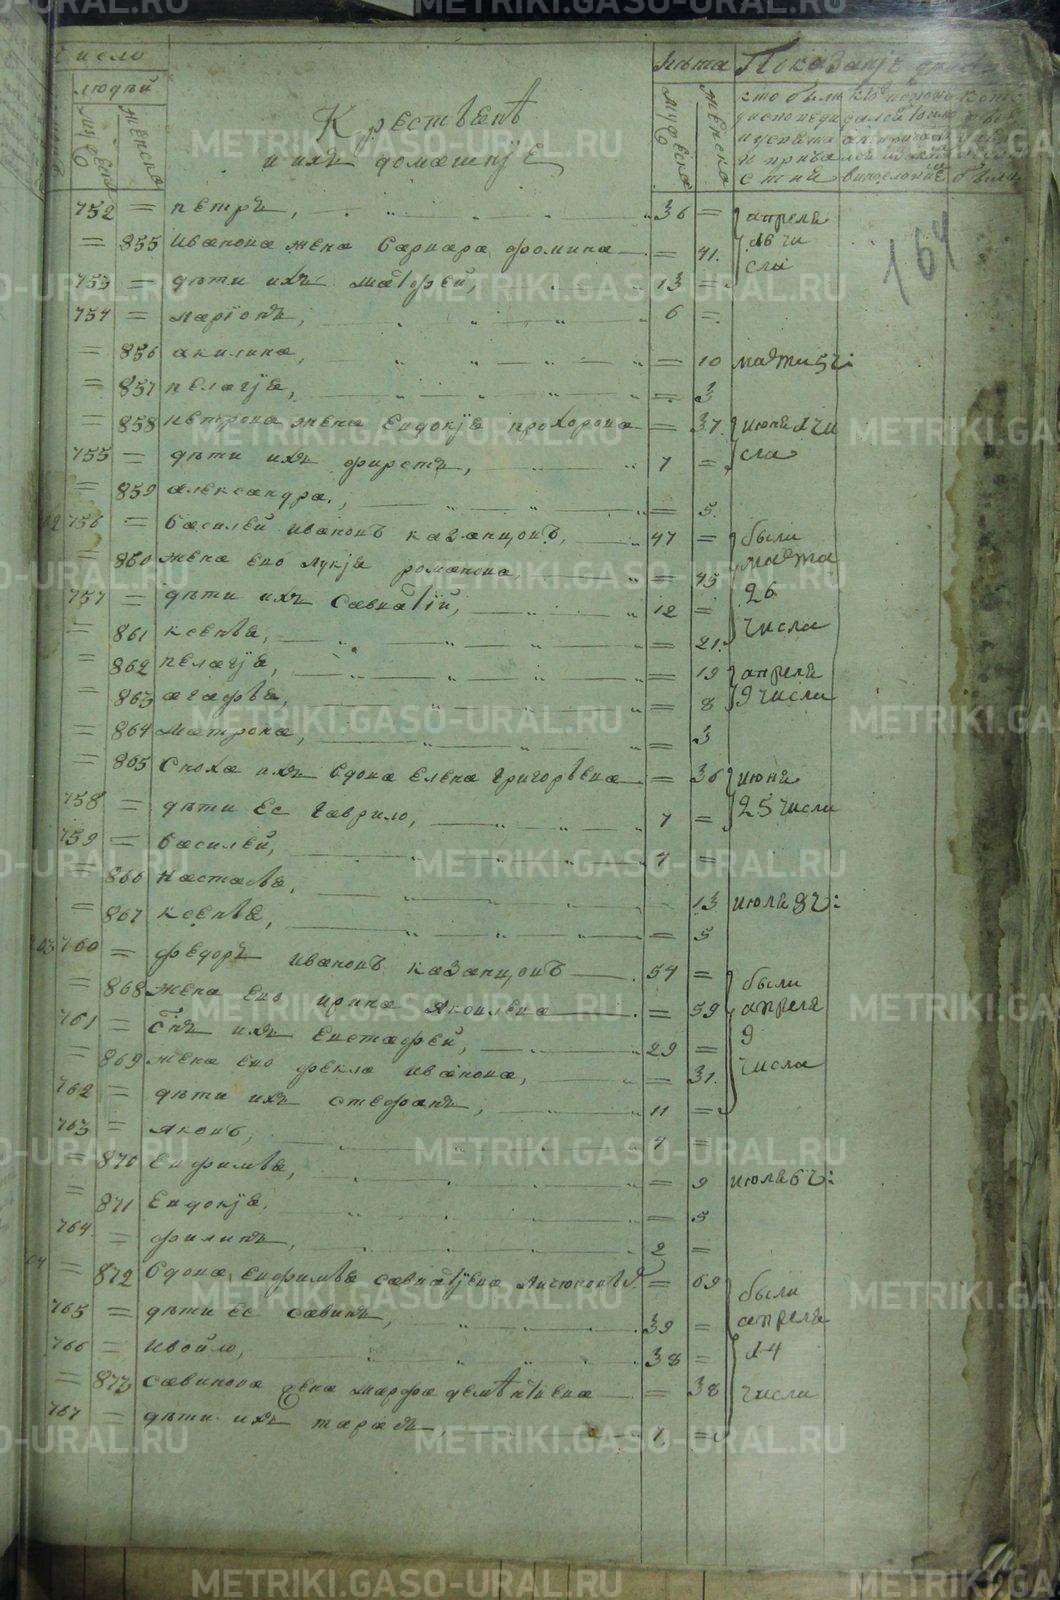 число
людей
мужеска
женска
Крестьянѣ
и ихъ домашнїе
лѣта
мужеска
женска
Показанїе
кто былъ
164
752 = петръ, 36 = апреля
= 855 иванова жена варвара фомина = 41. 16 чи
сла
753 = дѣти ихъ матфей, 13 =
754 = ларїонъ, 6 =
= 856 акилина, = 10 марта 5 ч:
= 857 пелагїя, = 3
= 858 петрова жена евдокїя прохорова = 37. июня 1 чи
сла
755 = дѣти ихъ фирстъ, 7 =
= 859 александра, = 5.
756 = василей ивановъ казанцовъ, 47 = были
= 860 жена ево лукїя романова, = 45 марта
757 = дѣти ихъ савватїй, 12 = 26
числа
= 861 ксенья, = 21.
= 862 пелагїя, = 19 апреля
= 863 агафья, = 8 9 числа
= 864 матрона, = 3
= 865 сноха ихъ вдова елена григорьева = 36 июня
758 = дѣти ее гаврило, 7 = 25 числа
759 = василей, 4 =
= 866 настасья, 13 июля 8 ч:
= 867 ксенья, = 5
203 760 = федоръ ивановъ казанцовъ 54 = были
= 868 жена ево ирина яковлева = 59 апреля
761 = снъ ихъ евстафей, 29 = 9
= 869 жена ево фекла иванова, = 31. числа
762 = дѣти ихъ стефанъ, 11 =
763 = яковъ, 4 =
= 870 евфимья, = 9 июля 6 ч:
= 871 евдокїя, = 5
764. = филипъ, 2 =
= 872 вдова евфимья савватїева = 69 были
765 = дѣти ее савинъ, 39 = апреля
766 = ивойло, 38 = 14
= 873 савинова жена марфа дементьева = 38 числа
767 = дѣти ихъ тарасъ, 1 =
METRIKI.GASO-URAL.RU